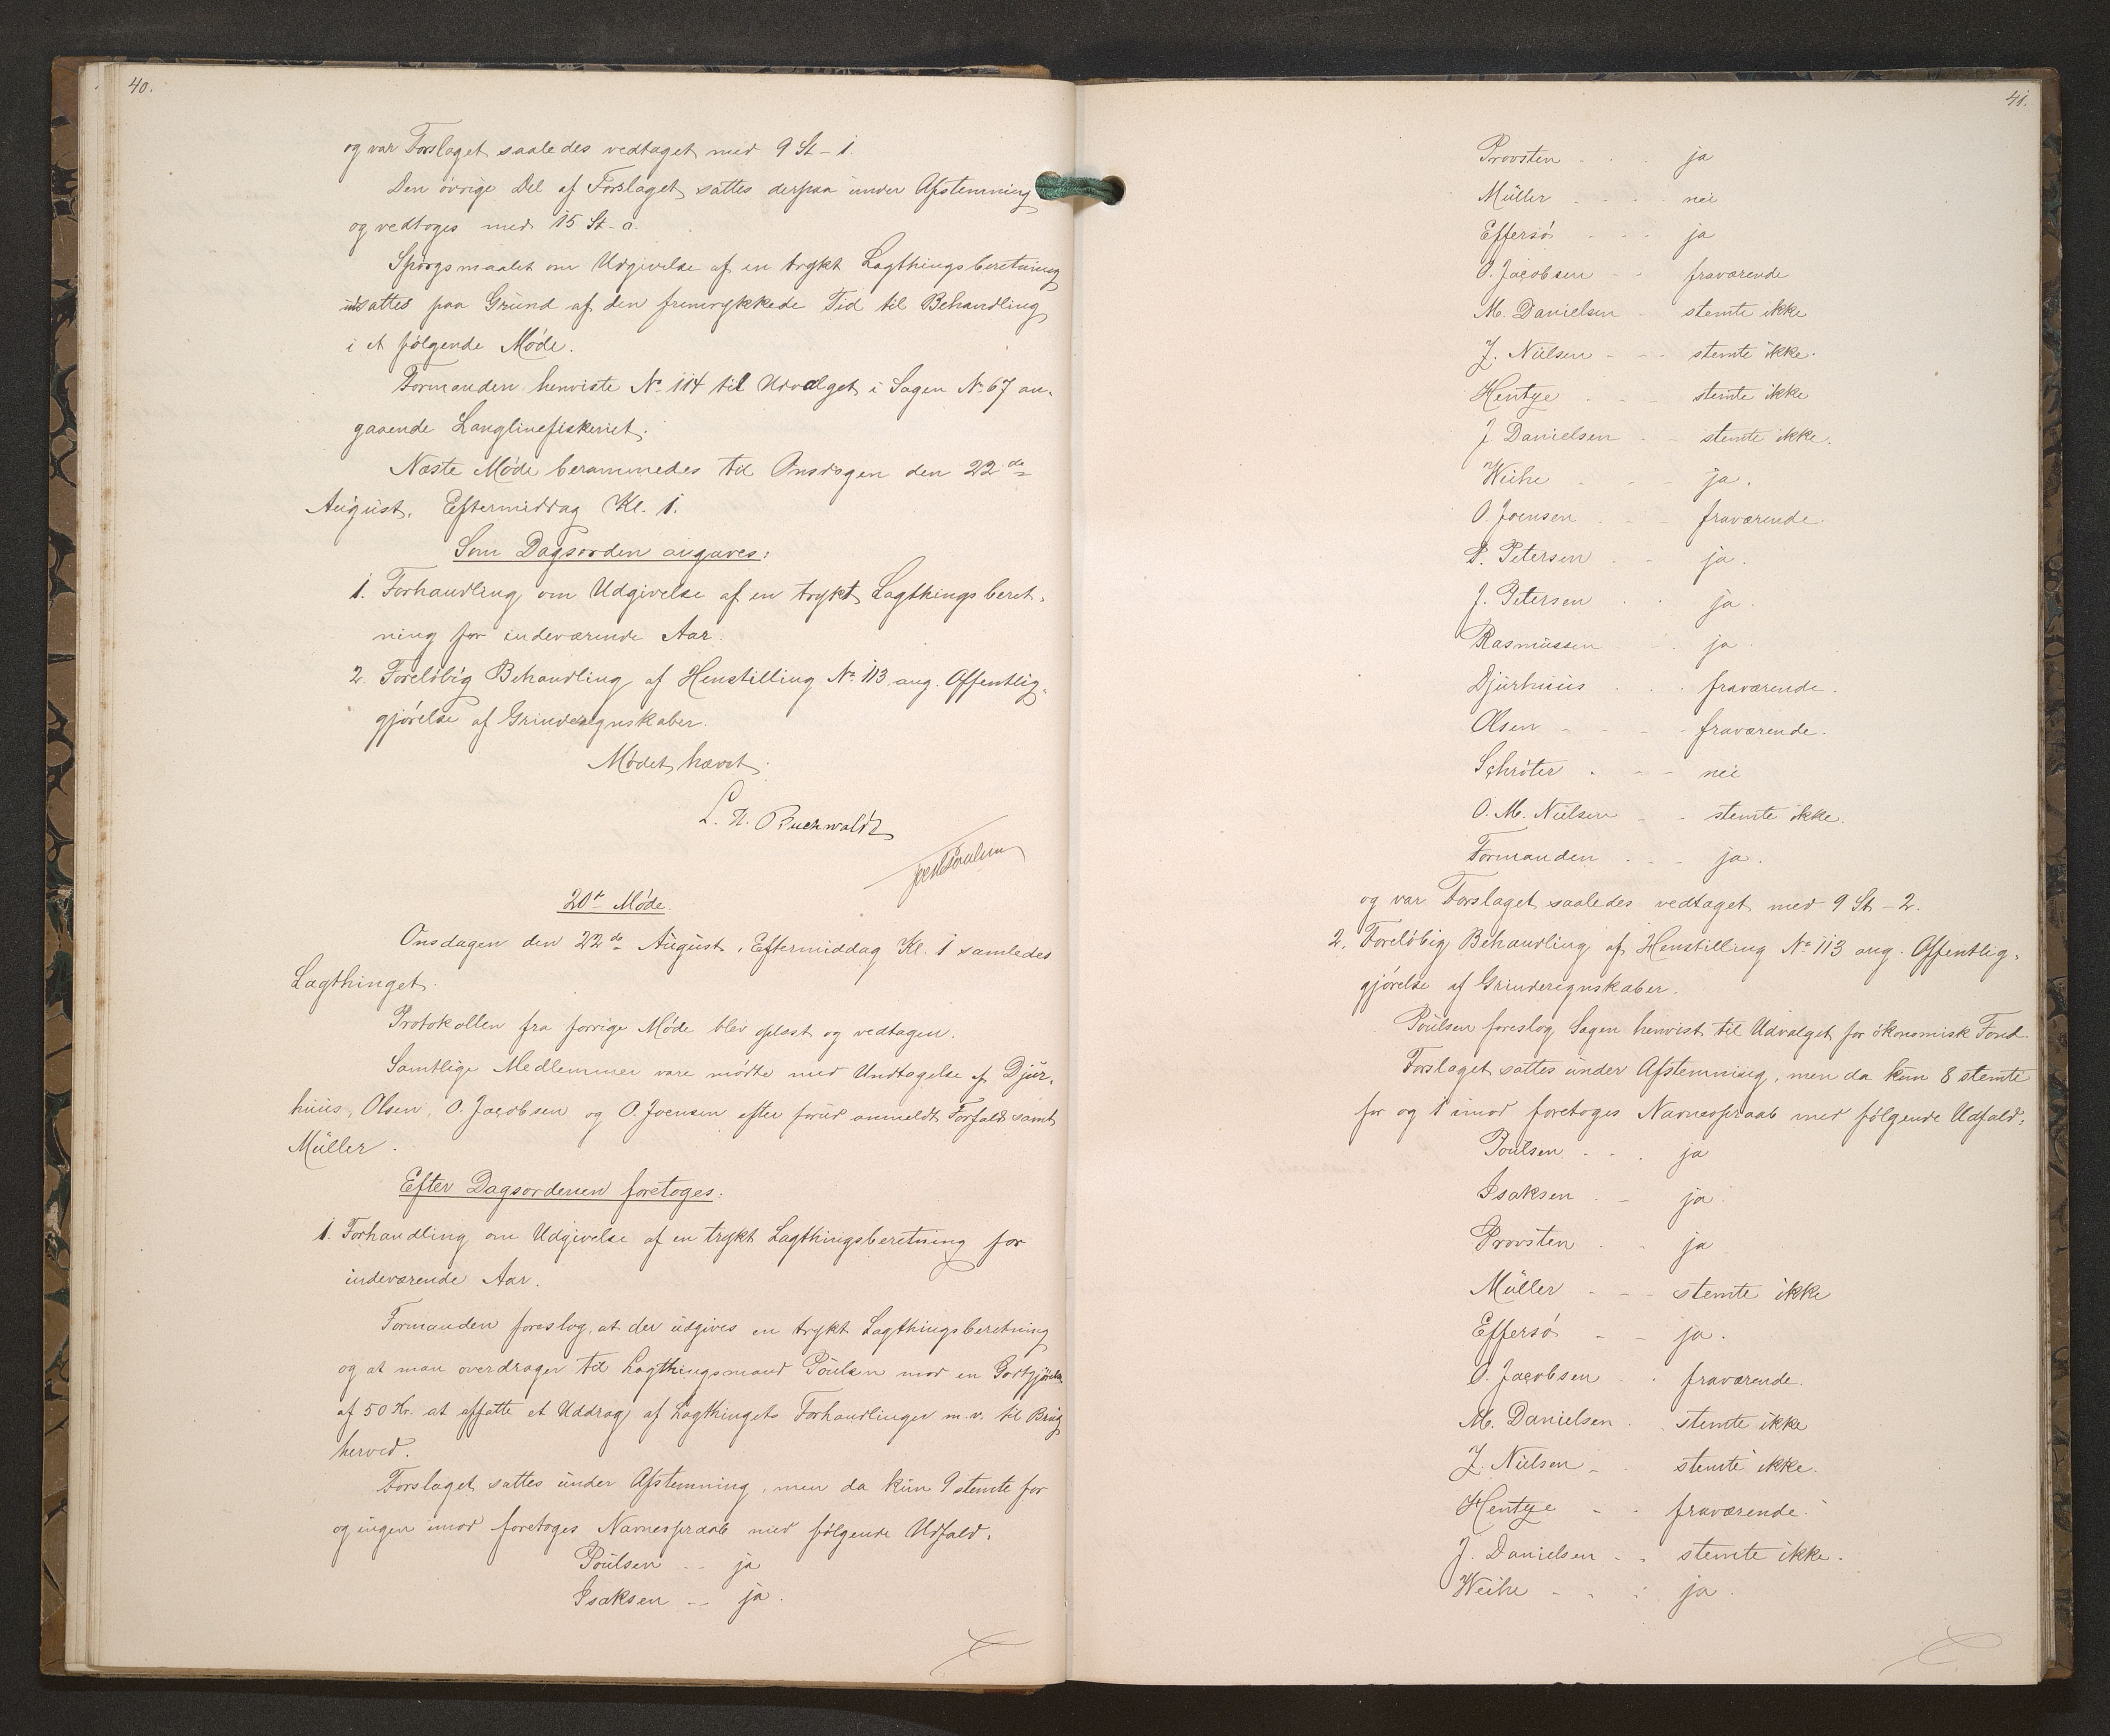 40.
og var Forslaget saaledes vedtaget med 9 St - 1.
Den øvrige Del af Forslaget sattes derpaa under Afstemning
og vedtoges med 15 St - 0.
Spørgsmaalet om Udgivelse af en trykt Lagthingsberetning
udsattes paa Grund af den fremrykkede Tid til Behandling
i et følgende Møde.
Formanden henviste No 114 til Udvalget i Sagen No 67 an-
gaaende Langlinefiskeriet.
Næste Møde berammedes til Onsdagen den 22de
August, Eftermiddag Kl. 1.
Som Dagsorden angaves:
1. Forhandling om Udgivelse af en trykt Lagthingsberet-
ning for indeværende Aar.
2. Foreløbig Behandling af Henstilling No 113 ang. Offentlig-
gjørelse af Grinderegnskaber.
Mødet hævet.
Buchwaldt
20de Møde.
Onsdagen den 22de August, Eftermiddag Kl. 1 samledes
Lagthinget.
Protokollen fra forrige Møde blev oplæst og vedtagen.
Samtlige Medlemmer vare mødte med Undtagelse af Djur-
huus, Olsen, O. Jacobsen og O. Joensen efter forud anmeldt Forfald samt
Müller.
Efter Dagsordenen foretoges:
1. Forhandling om Udgivelse af en trykt Lagthingsberetning for
indeværende Aar.
Formanden foreslog, at der udgives en trykt Lagthingsberetning
og at man overdrager til Lagthingsmand Poulsen mod en Godtgjørelse
af 50 Kr. at affatte et Uddrag af Lagthingets Forhandlinger m. v. til Brug
herved.
Forslaget sattes under Afstemning, men da kun 9 stemte for
og ingen imod foretoges Navneopraab med følgende Udfald.
Poulsen - - ja
Isaksen - - ja.
41.
Provsten - - - ja
Müller - - - nei
Effersø - - - ja
O. Jacobsen - - fraværende
M. Danielsen - stemte ikke
J. Nielsen - - - stemte ikke.
Hentze - - - stemte ikke
J Danielsen - - stemte ikke.
Weihe - - - ja.
O. Joensen - - fraværende.
P. Petersen - - ja.
J. Petersen - - ja.
Rasmussen - - ja.
Djurhuus - - - fraværende.
Olsen - - - - fraværende.
Schrøter - - - nei
O. M. Nielsen - - stemte ikke.
Formanden - - - ja.
og var Forslaget saaledes vedtaget med 9 St - 2.
2. Foreløbig Behandling af Henstilling No 113 ang. Offentlig-
gjørelse af Grinderegnskaber.
Poulsen foreslog Sagen henvist til Udvalget for økonomisk Fond.
Forslaget sattes under Afstemning, men da kun 8 stemte
for og 1 imod foretoges Navneopraab med følgende Udfald:
Poulsen - - - ja
Isaksen - - ja.
Provsten - - ja
Müller - - - stemte ikke
Effersø - - ja.
O. Jacobsen - - fraværende.
M. Danielsen - stemte ikke
J. Nielsen - - stemte ikke.
Hentze - - fraværende.
J. Danielsen - - stemte ikke.
Weihe - - - ja.